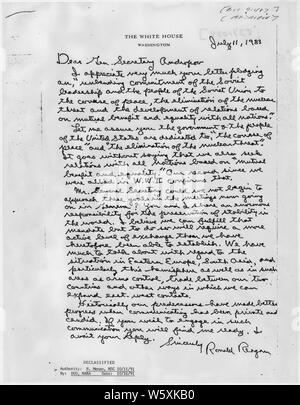 THE WHITE HOUSE
WASHINGTON
July 11, 1983
Dear Gen. Secretary Andropov
I appreciate very much your letter pledging
an, "unbending commitment of the Soviet
leadership and the people of the Soviet Union to
the course of peace, the elimination of the nuclear
threat and the development of relations based
on mutual benefit and equality with all nations."
Let me assure you the government & the people
of the United States are dedicated to, "the course of
peace" and "the elimination of the nuclear threat".
It goes without saying that we also seek
relations with all nations based on "mutual
benefit and equality". Our record since we
were allied in W.W.II confirms that.
Mr. General Secretary could we not begin to
approach these goals in the meetings now going
on in Geneva? You and I share an enormous
responsibility for the preservation of stability in
the world. I believe we can fulfill that
mandate but to do so will require a more
active level of exchange than we have
heretofore been able to establish. We have
much to talk about with regard to the
situation in Eastern Europe, South Asia, and
particularly this hemisphere as well as in such
areas as arms control, trade between our two
countries and other ways in which we can
expand east-west contacts.
Historically our predecessors have made better
progress when communicating has been private and
candid. If you wish to engage in such
communication you will find me ready. I
await your reply.
Sincerely
Ronald Reagan
DECLASSIFIED
Authority:
By:
alamy
Image ID: W5XKB0
www.alamy.com